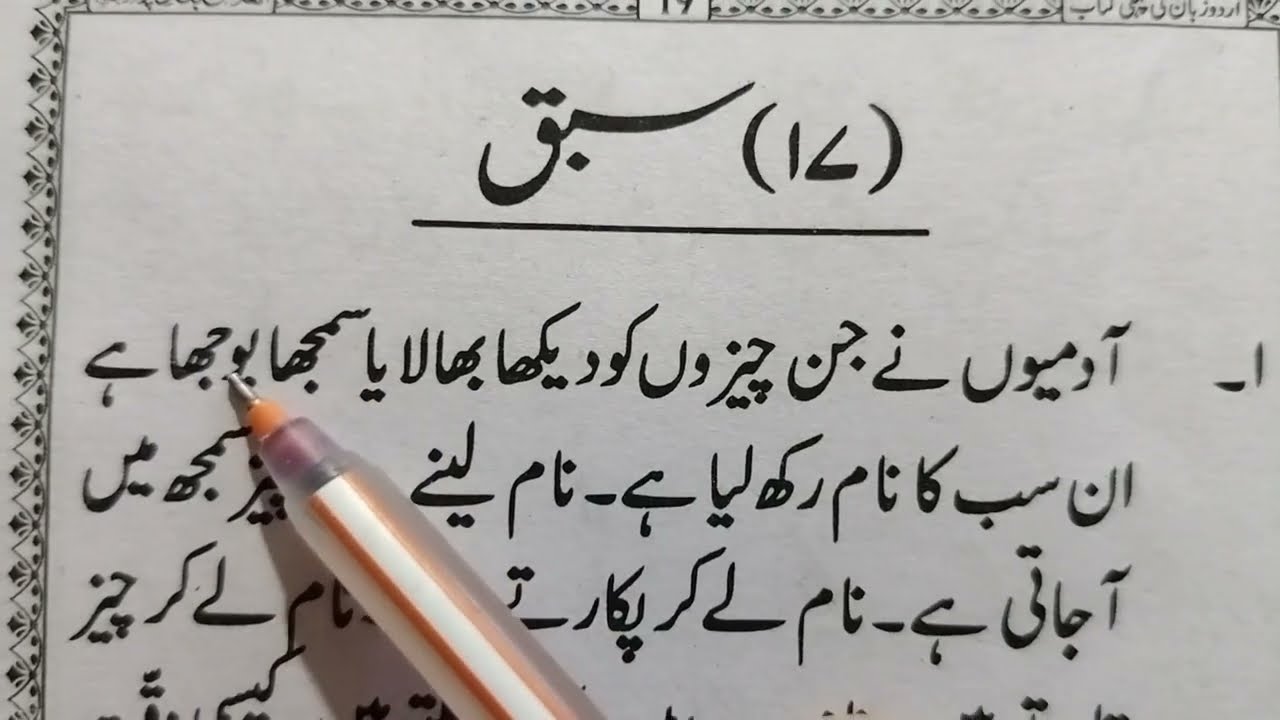 اردو زبان کی پہلی کتاب
19
(۱۷) سبق
۱۔ آدمیوں نے جن چیزوں کو دیکھا بھالا یا سمجھا بوجھا ہے
ان سب کا نام رکھ لیا ہے۔ نام لینے چیز سمجھ میں
آجاتی ہے۔ نام لے کر پکارتے نام لے کر چیز